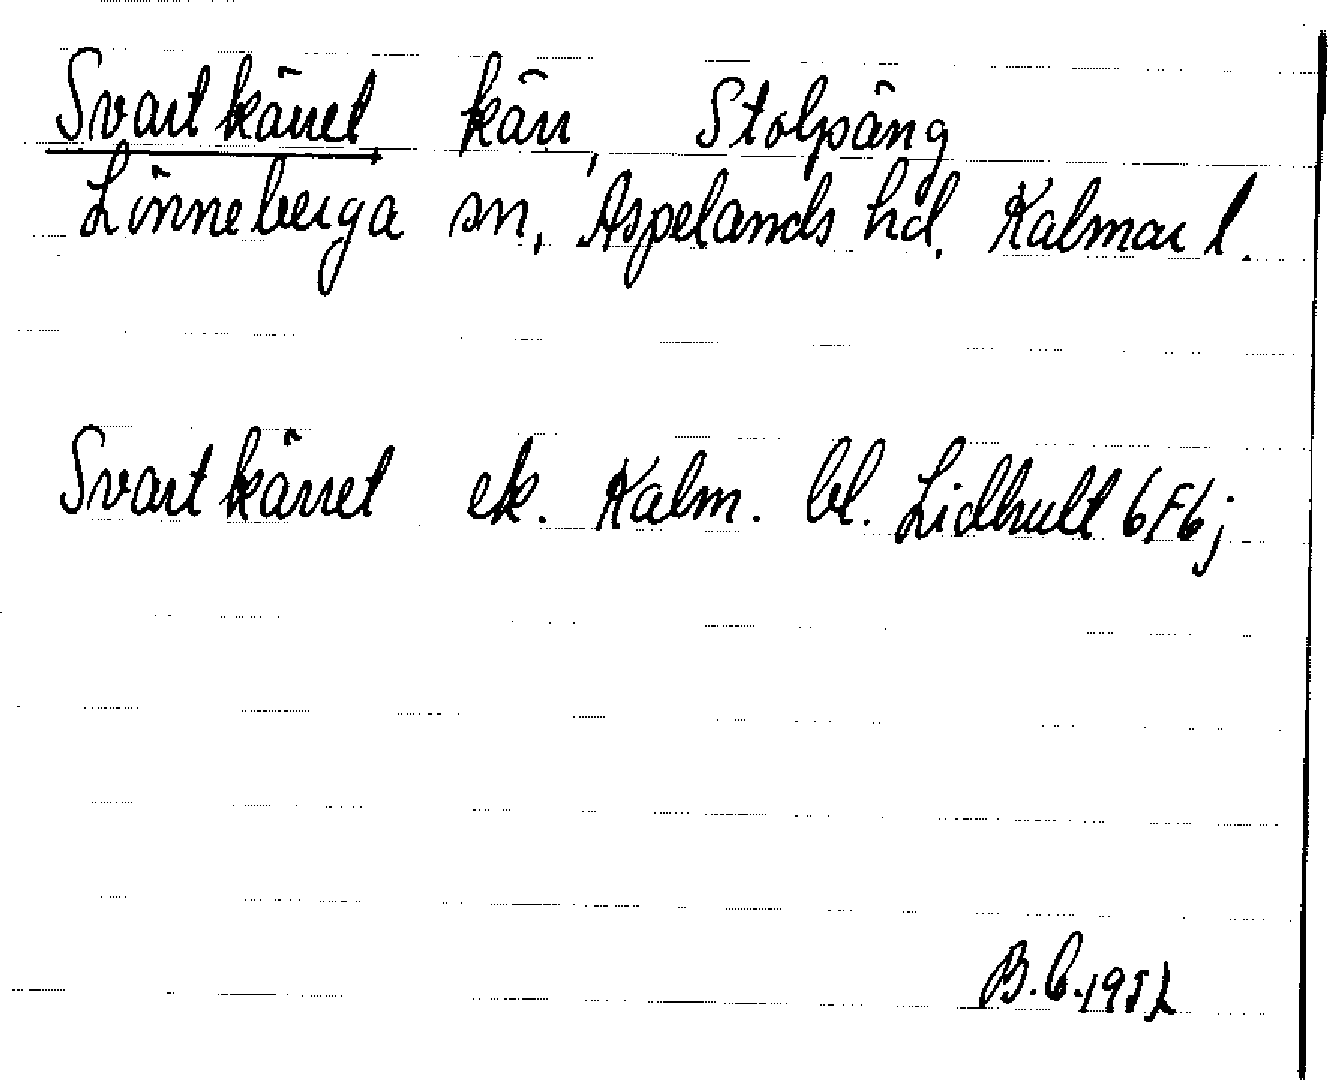 Svartkärret kärr, Stolpäng
Lönneberga sn, Aspelands hd. Kalmar l.
Svartkärret ek. Kalm. bl. Lidhult 6F6j
B.C. 1952